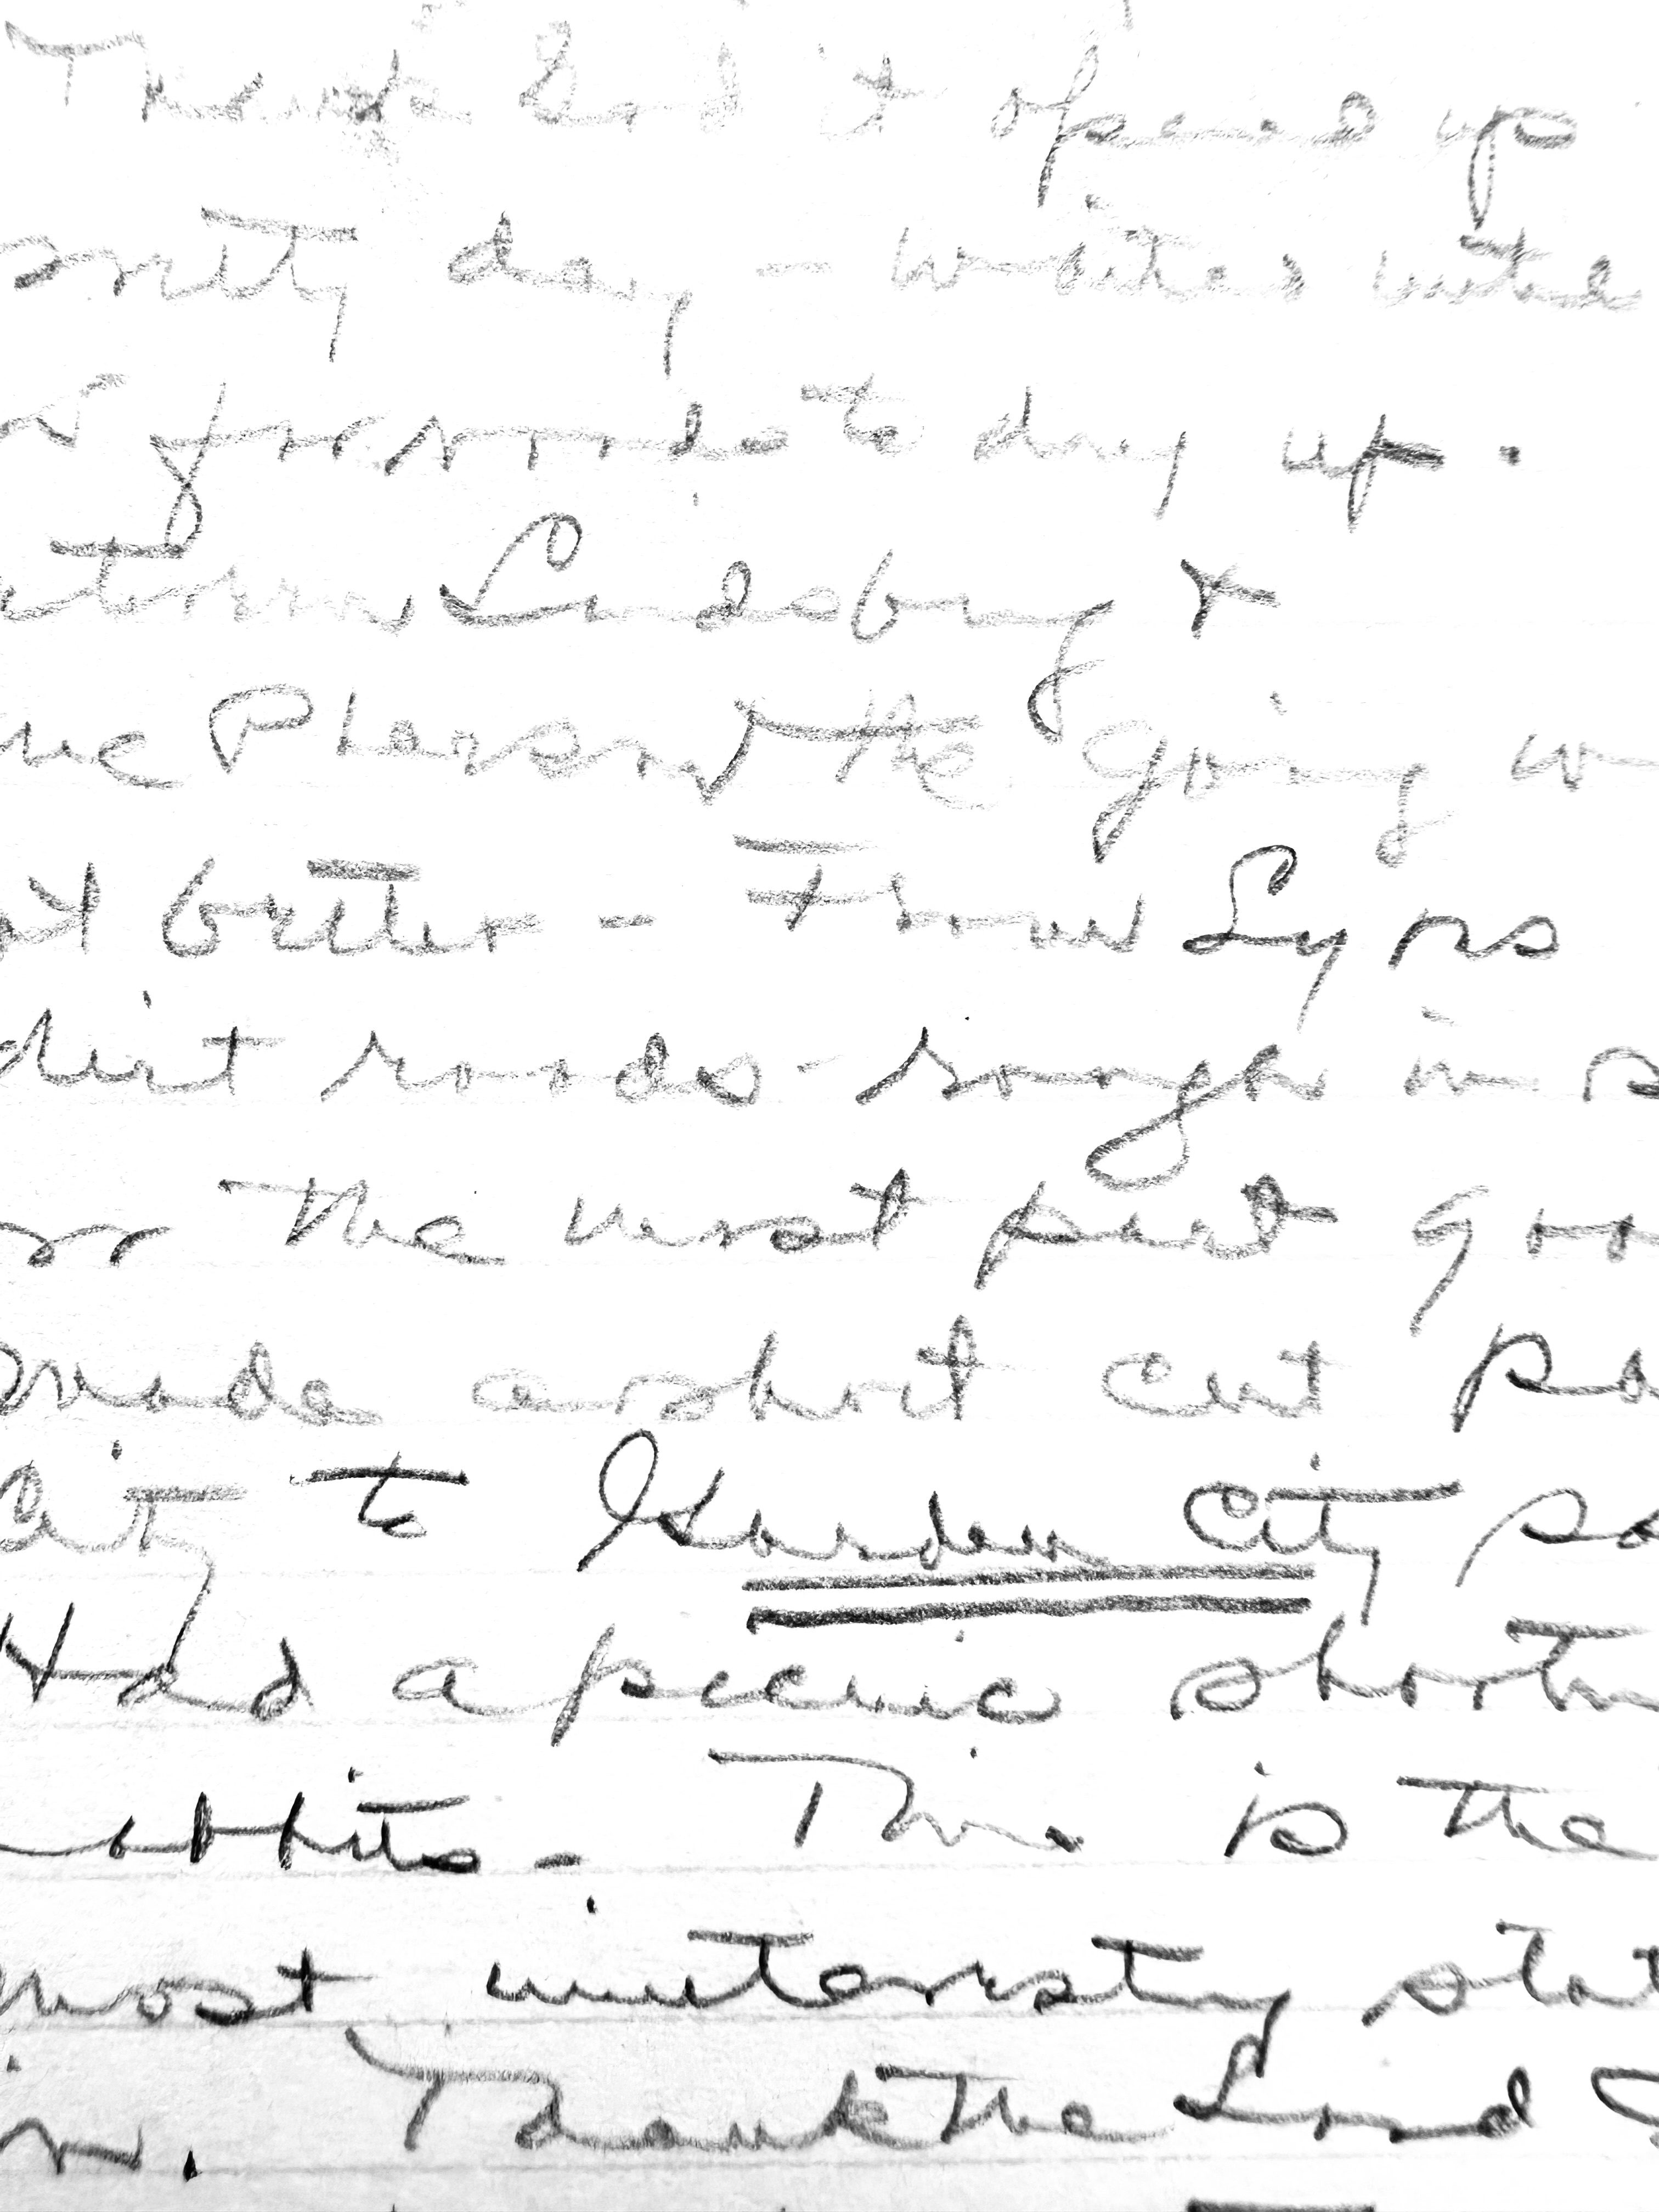 Thank God it opened up
pretty day - writes with
for roads to day up.
between Lindsburg &
me Pleasant the going w
at better - From Lyns
dirt roads - rough in s
or the most part goo
made a short cut pa
City to Garden City sa
Had a picnic shortn
rabbits - This is the
most uninteresting stat
in. Thank the Lord I